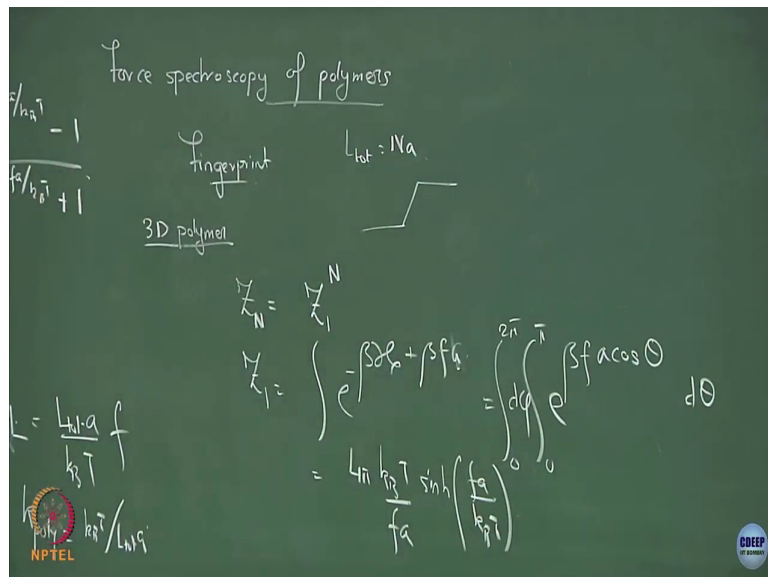 Force spectroscopy of polymers
/k_BT - 1
fa/k_BT + 1
Fingerprint
L_tot = Na
3D polymer
Z_N = Z_1^N
Z_1 = ∫ e^{-βH_0 + βfa} = ∫_0^{2π} dφ ∫_0^π e^{βf a cos θ} dθ
= 4π k_BT/fa sinh(fa/k_BT)
L = L_tot.a/k_BT f
k_poly = k_BT/L_tot a
NPTEL
CDEEP
IIT BOMBAY